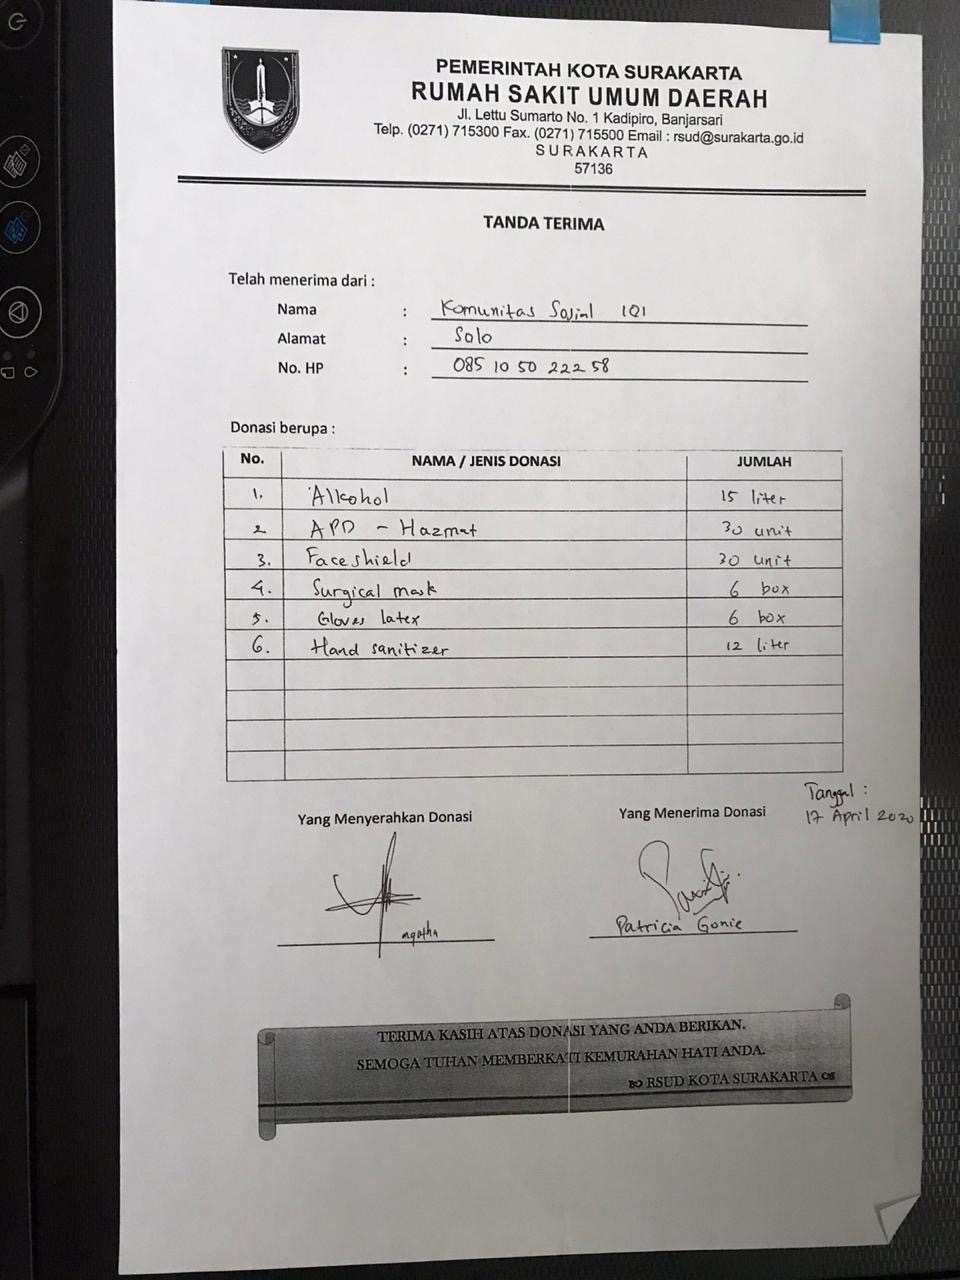 PEMERINTAH KOTA SURAKARTA
RUMAH SAKIT UMUM DAERAH
Jl. Lettu Sumarto No. 1 Kadipiro, Banjarsari
Telp. (0271) 715300 Fax. (0271) 715500 Email : rsud@surakarta.go.id
SURAKARTA
57136
TANDA TERIMA
Telah menerima dari :
Nama : Komunitas Sosial 101
Alamat : Solo
No. HP : 085 10 50 222 58
Donasi berupa :
No. NAMA / JENIS DONASI JUMLAH
1. Alkohol 15 liter
2 APD - Hazmat 30 unit
3. Face shield 30 unit
4. Surgical mask 6 box
5. Gloves latex 6 box
6. Hand sanitizer 12 liter
Tanggal :
17 April 2020
Yang Menyerahkan Donasi Yang Menerima Donasi
agatha Patricia Gonie
TERIMA KASIH ATAS DONASI YANG ANDA BERIKAN.
SEMOGA TUHAN MEMBERKATI KEMURAHAN HATI ANDA.
RSUD KOTA SURAKARTA